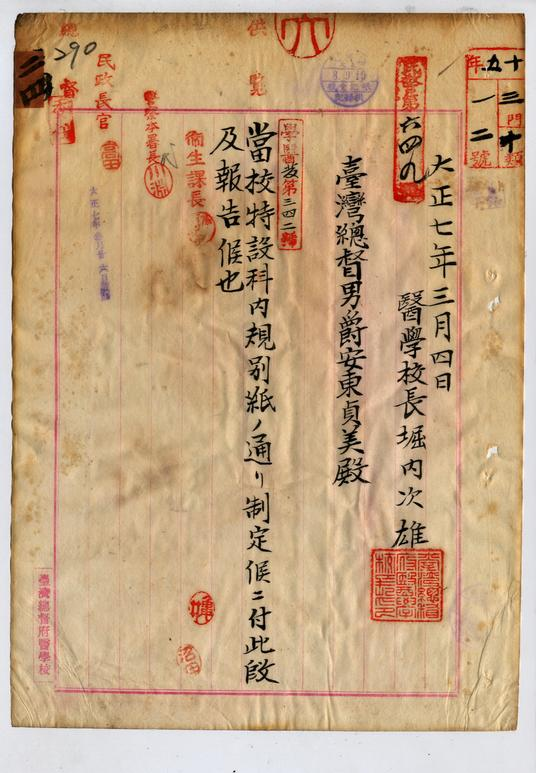 供覽
十五年
十三門
十類
一二號
民警第六四九
8.9.19
大正七年三月四日
醫學校長堀內次雄
臺灣總督男爵安東貞美殿
學醫敎第三四二號
當校特設科內規別紙ノ通リ制定候ニ付此段
及報告候也
衞生課長
警察本署長
川淵
民政長官
總督
290
二四
臺灣總督府醫學校